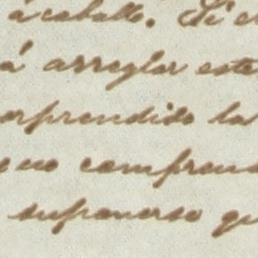 á caballo. Si el
á arreglar este
orprendido la
no comprend
suponerse qu